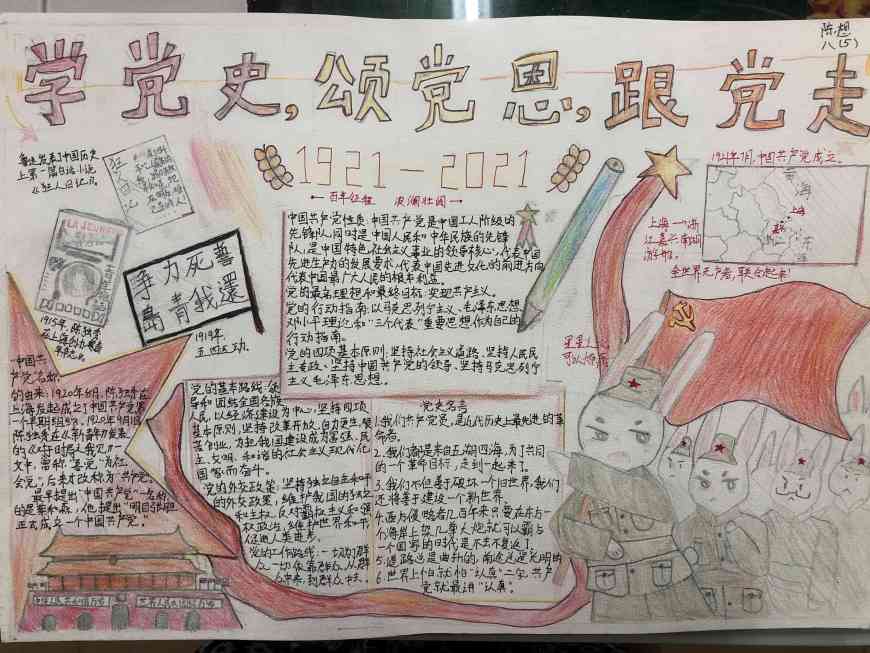 学党史,颂党恩,跟党走
陈想
八(5)
1921-2021
百年征程 波澜壮阔
鲁迅发表了中国历史
上第一篇白话小说
《狂人日记》。
狂人日记
LA JEUNESSE
1915年,陈独秀
在上海创办
誓死力争
還我青島
1919年
五四运动。
中国共产党性质:中国共产党是中国工人阶级的
先锋队,同时是中国人民和中华民族的先锋
队,是中国特色社会主义事业的领导核心,代表中国
先进生产力的发展要求,代表中国先进文化的前进方向
代表中国最广大人民的根本利益。
党的最高理想和最终目标:实现共产主义。
党的行动指南:以马克思列宁主义、毛泽东思想、
邓小平理论和"三个代表"重要思想作为自己的
行动指南。
党的四项基本原则:坚持社会主义道路、坚持人民民
主专政、坚持中国共产党的领导、坚持马克思列宁
主义毛泽东思想。
1921年7月,中国共产党成立。
上海
上海一浙
江嘉兴南湖
游船。
全世界无产者,联合起来!
星星之火
可以燎原
"中国共
产党"名称
的由来:1920年6月,陈独秀在
上海发起成立了中国共产党第
一个早期组织。1920年9月1日
陈独秀在《新青年》发表
的《对于时局之我见》一
文中,曾称"吾党"为"社
会党",后来才改称为"共产党"。
最早提出"中国共产党"一名称
的是蔡和森,他提出"明目张胆
正式成立一个中国共产党"。
党的基本路线:领
导和团结全国各族
人民,以经济建设为中心,坚持四项
基本原则,坚持改革开放,自力更生,艰
苦创业,为把我国建设成为富强、民
主、文明、和谐的社会主义现代化
国家而奋斗。
党的外交政策:坚持独立自主和平
的外交政策,维护我国的独立
和主权,反对霸权主义和强
权政治,维护世界和平
促进人类进步。
党的工作路线:一切为群
众,一切依靠群众,从群
众中来,到群众中去。
党史名言
1.我们共产党员,是近代历史上最先进的革
命者。
2.我们都是来自五湖四海,为了共同
的一个革命目标,走到一起来了。
3.我们不但善于破坏一个旧世界,我们
还将善于建设一个新世界。
4.西方侵略者几百年来只要在东方一
个海岸上架几尊大炮就可霸占
一个国家的时代是不去不复返了
5.道路总是曲折的,前途还是光明的
6.世界上怕就怕"认真"二字,共产
党就最讲"认真"。